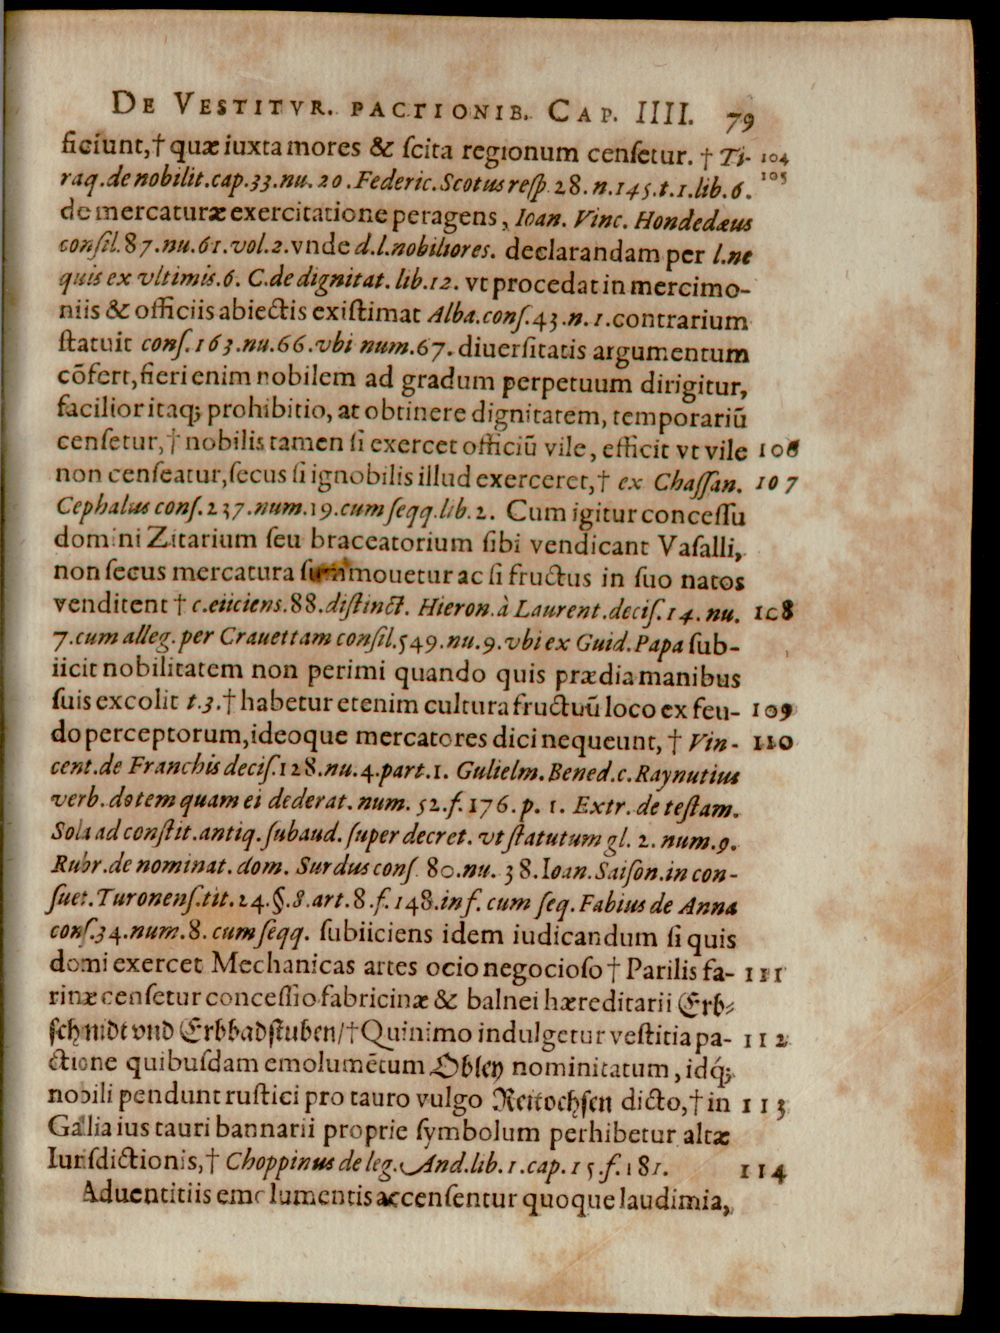 DE VESTITVR. PACTIONIB. CAP. IIII. 79
ficiunt,† quæ iuxta mores & ſcita regionum cenſetur. † Ti- 104
raq. de nobilit. cap. 33. nu. 20. Federic. Scotus reſp. 28. n. 145. t. 1. lib. 6. 105
de mercaturæ exercitatione peragens, Ioan. Vinc. Hondedæus
conſil. 87. nu. 61. vol. 2. vnde d. l. nobiliores. declarandam per l. ne
quis ex vltimis. 6. C. de dignitat. lib. 12. vt procedat in mercimo-
niis & officiis abiectis exiſtimat Alba. conſ. 43. n. 1. contrarium
ſtatuit conſ. 163. nu. 66. vbi num. 67. diuerſitatis argumentum
cõfert, fieri enim nobilem ad gradum perpetuum dirigitur,
facilior itaq; prohibitio, at obtinere dignitatem, temporariũ
cenſetur, † nobilis tamen ſi exercet officiũ vile, efficit vt vile 106
non cenſeatur, ſecus ſi ignobilis illud exerceret, † ex Chaſſan. 107
Cephalus conſ. 237. num. 19. cum ſeqq. lib. 2. Cum igitur conceſſu
domini Zitarium ſeu braceatorium ſibi vendicant Vaſalli,
non ſecus mercatura ſummouetur ac ſi fructus in ſuo natos
venditent † c. eiiciens. 88. diſtinct. Hieron. à Laurent. deciſ. 14. nu. 108
7. cum alleg. per Crauettam conſil. 549. nu. 9. vbi ex Guid. Papa ſub-
iicit nobilitatem non perimi quando quis prædia manibus
ſuis excolit t. 3. † habetur etenim cultura fructuũ loco ex feu- 109
do perceptorum, ideoque mercatores dici nequeunt, † Vin- 110
cent. de Franchis deciſ. 128. nu. 4. part. 1. Gulielm. Bened. c. Raynutius
verb. dotem quam ei dederat. num. 52. f. 176. p. 1. Extr. de teſtam.
Sola ad conſtit. antiq. ſubaud. ſuper decret. vt ſtatutum gl. 2. num. 9.
Rubr. de nominat. dom. Surdus conſ. 80. nu. 38. Ioan. Saiſon. in con-
ſuet. Turonenſ. tit. 24. §. 8. art. 8. f. 148. inf. cum ſeq. Fabius de Anna
conſ. 34. num. 8. cum ſeqq. ſubiiciens idem iudicandum ſi quis
domi exercet Mechanicas artes ocio negocioſo † Parilis fa- 111
rinæ cenſetur conceſſio fabricinæ & balnei hæreditarii Erb-
ſchmidt vnd Erbbadſtuben/ † Quinimo indulgetur veſtitia pa- 112
ctione quibuſdam emolumẽtum Obley nominitatum, idq́;
nobili pendunt ruſtici pro tauro vulgo Reitochſen dicto, † in 113
Gallia ius tauri bannarii proprie ſymbolum perhibetur altæ
Iurisdictionis, † Choppinus de leg. And. lib. 1. cap. 15. f. 181. 114
Aduentitiis emolumentis accenſentur quoque laudimia,